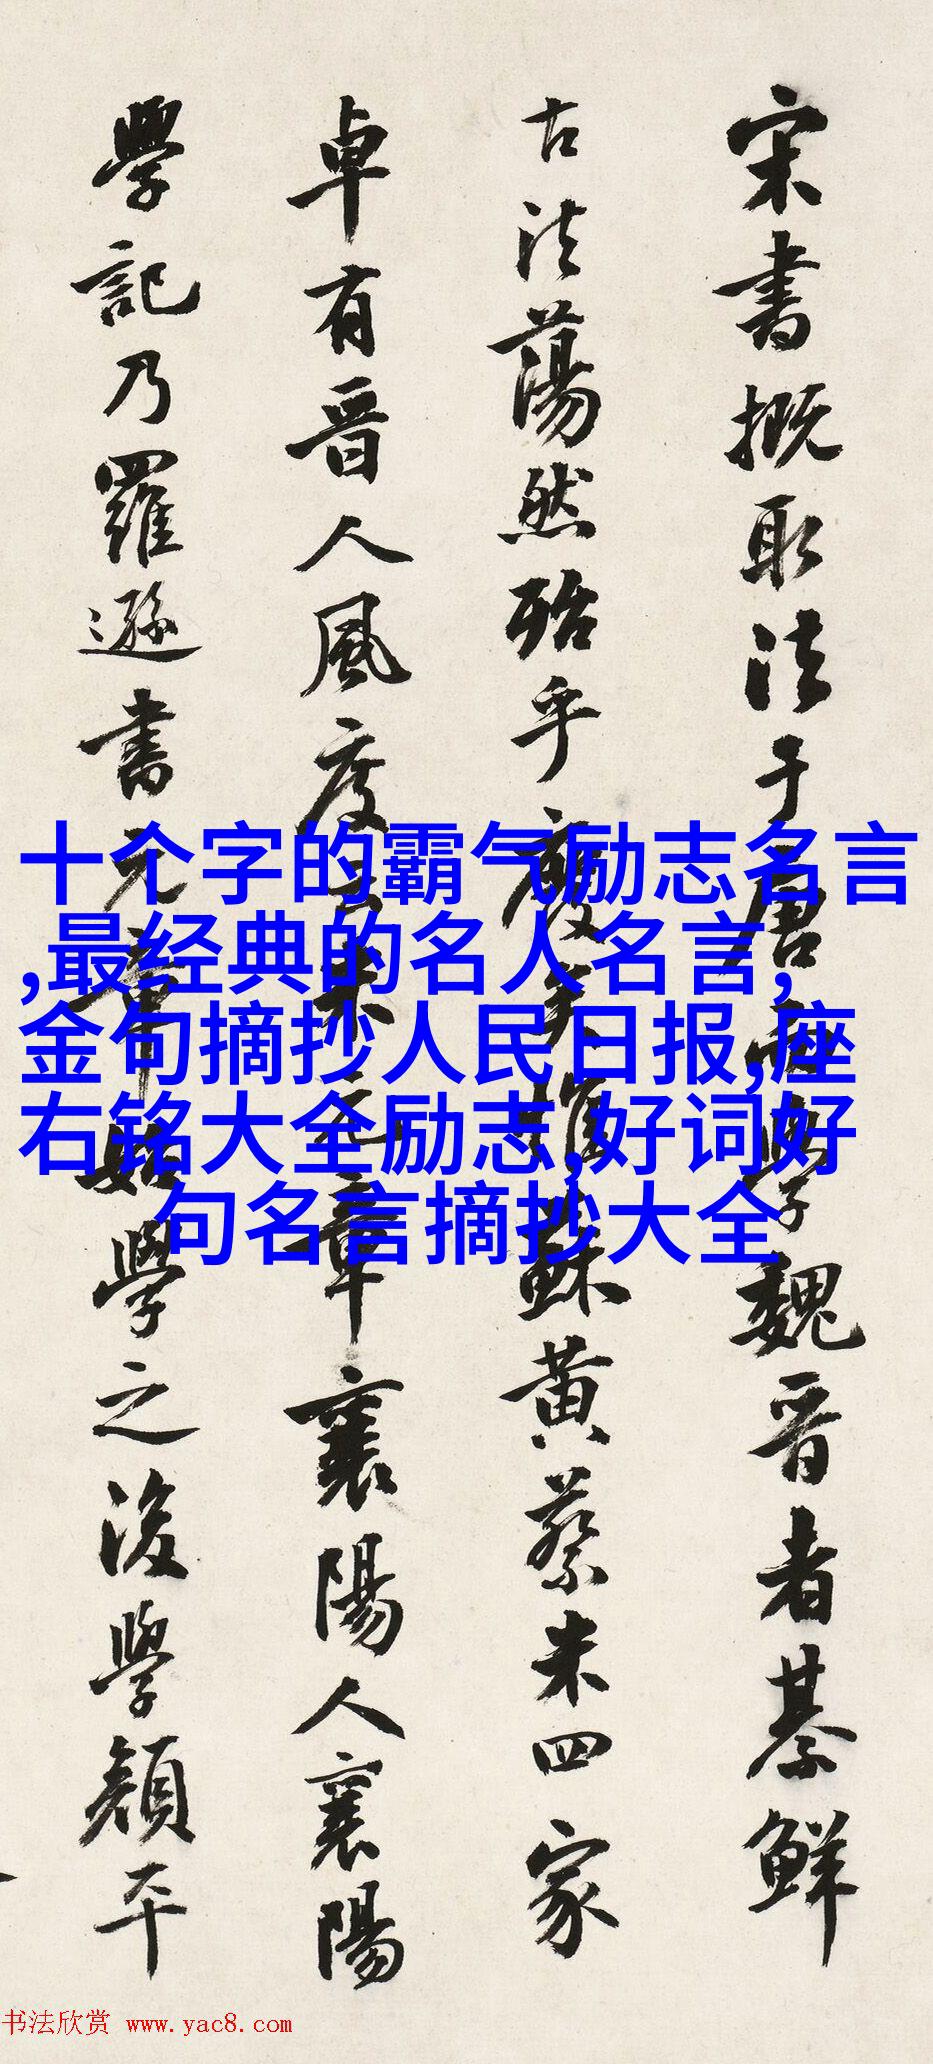 宋書概取法于唐而學魏晉者綦鮮
古法蕩然殆乎廢矣惟蘇黃蔡米四家
卓有晉人風度米元章襄陽人襄陽
學記乃羅遜書元章始學之後學顏平
十个字的霸气励志名言
,最经典的名人名言,
金句摘抄人民日报,座
右铭大全励志,好词好
句名言摘抄大全
书法欣赏 www.yac8.com